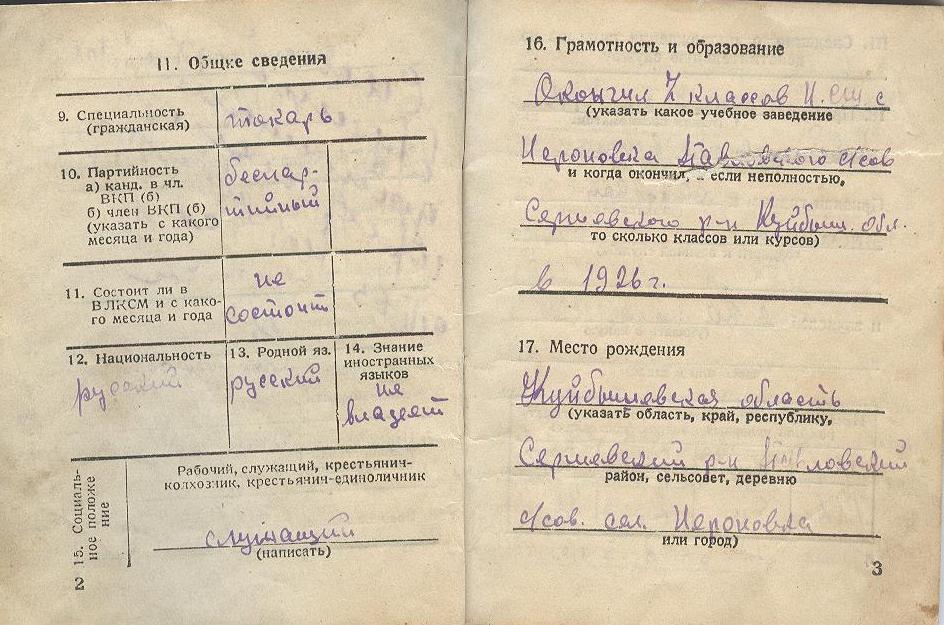 II. Общие сведения
9. Специальность
(гражданская)
токарь
10. Партийность
а) канд. в чл.
ВКП (б)
б) член ВКП (б)
(указать с какого
месяца и года)
беспар-
тийный
11. Состоит ли в
ВЛКСМ и с како-
го месяца и года
не
состоит
12. Национальность
русский
13. Родной яз.
русский
14. Знание
иностранных
языков
не
владеет
15. Социаль-
ное положе
ние
Рабочий, служащий, крестьянин-
колхозник, крестьянин-единоличник
служащий
(написать)
2
16. Грамотность и образование
Окончил 7 классов с
(указать какое учебное заведение
с/сов
и когда окончил, а если неполностью,
Сергиевского р-н Куйбыш. обл.
то сколько классов или курсов)
в 1926 г.
17. Место рождения
Куйбышевская область
(указать область, край, республику,
Сергиевский р-н
район, сельсовет, деревню
с/сов. сел.
или город)
3